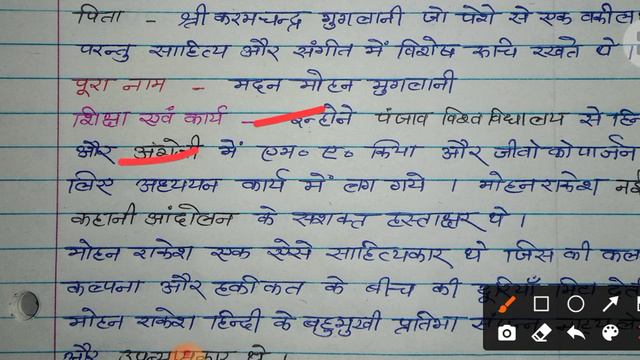 पिता - श्री करमचन्द्र मुगलानी जो पेशे से एक वकील
परन्तु साहित्य और संगीत में विशेष रूचि रखते थे
पूरा नाम - मदन मोहन मुगलानी
शिक्षा एवं कार्य - इन्होने पंजाव विश्व विद्यालय से
और अंग्रेजी में एम॰ ए॰ किया और जीवोकोपार्जन
लिए अध्ययन कार्य में लग गये । मोहन राकेश नई
कहानी आंदोलन के सशक्त हस्ताक्षर थे ।
मोहन राकेश एक ऐसे साहित्यकार थे जिस की
कल्पना और हकीकत के बीच की दूरियाँ
मोहन राकेश हिन्दी के बहुमुखी प्रतिभा
और उपन्यासकार थे ।